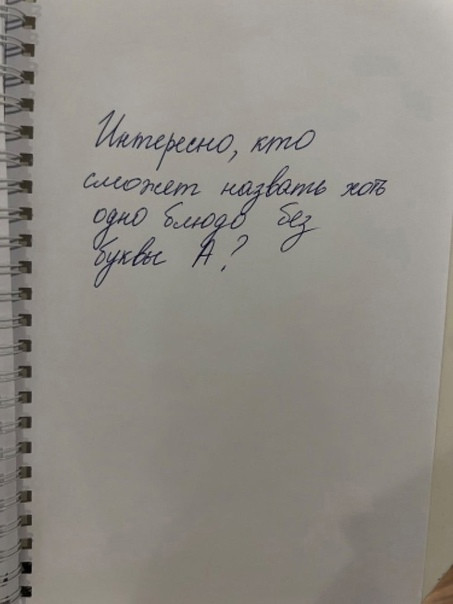 Интересно, кто
сможет назвать хоть
одно блюдо без
буквы А?